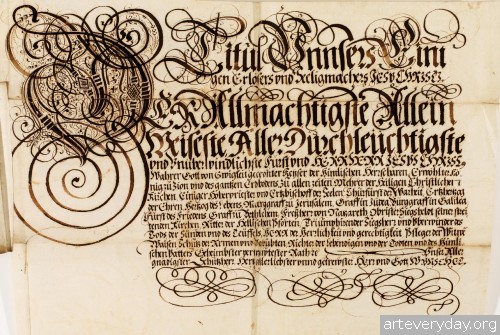 Titul Unnsers Eini
gen Erlösers und Seeligmachers JESU CHRISTI.
DER Allmächtigste Allein
Weiseste Aller Durchleuchtigste
und Unüberwindlichste Fürst und HERR HERR JESUS CHRISTUS
Wahrer Gott von Ewigkeit gecrönter Keyser der Himlischen Heerscharen, Erwöhlter Kö
nig zu Zion und des gantzen Erdbodens zu allen zeiten Mehrer der Heiligen Christlichen
Kirchen Einiger Hoherpriester und Ertzbischoff der Seelen Churfürst der Warheit Ertzhertzog
der Ehren Hertzog des Lebens Marggraff zu Jerusalem Graff in Judea Burggraff in Galilæa
Fürst des Friedens Graff zu Bethlehem Freyherr von Nazareth Obrister seiner strei
tenden Kirchen Ritter der Höllischen Pforten Triumphierender Siegherr und Überwinder des
Tods der Sünden und des Teuffels HERR der Herrlichkeit und gerechtigkeit Pfleger der Witwe
Waisen Schutz der Armen und Betrübten Richter der Lebendigen und der Todten und des Himli
schen Vatters Geheimbster Rath Unser Aller
gnädigster HERR und Gott
arteveryday.org